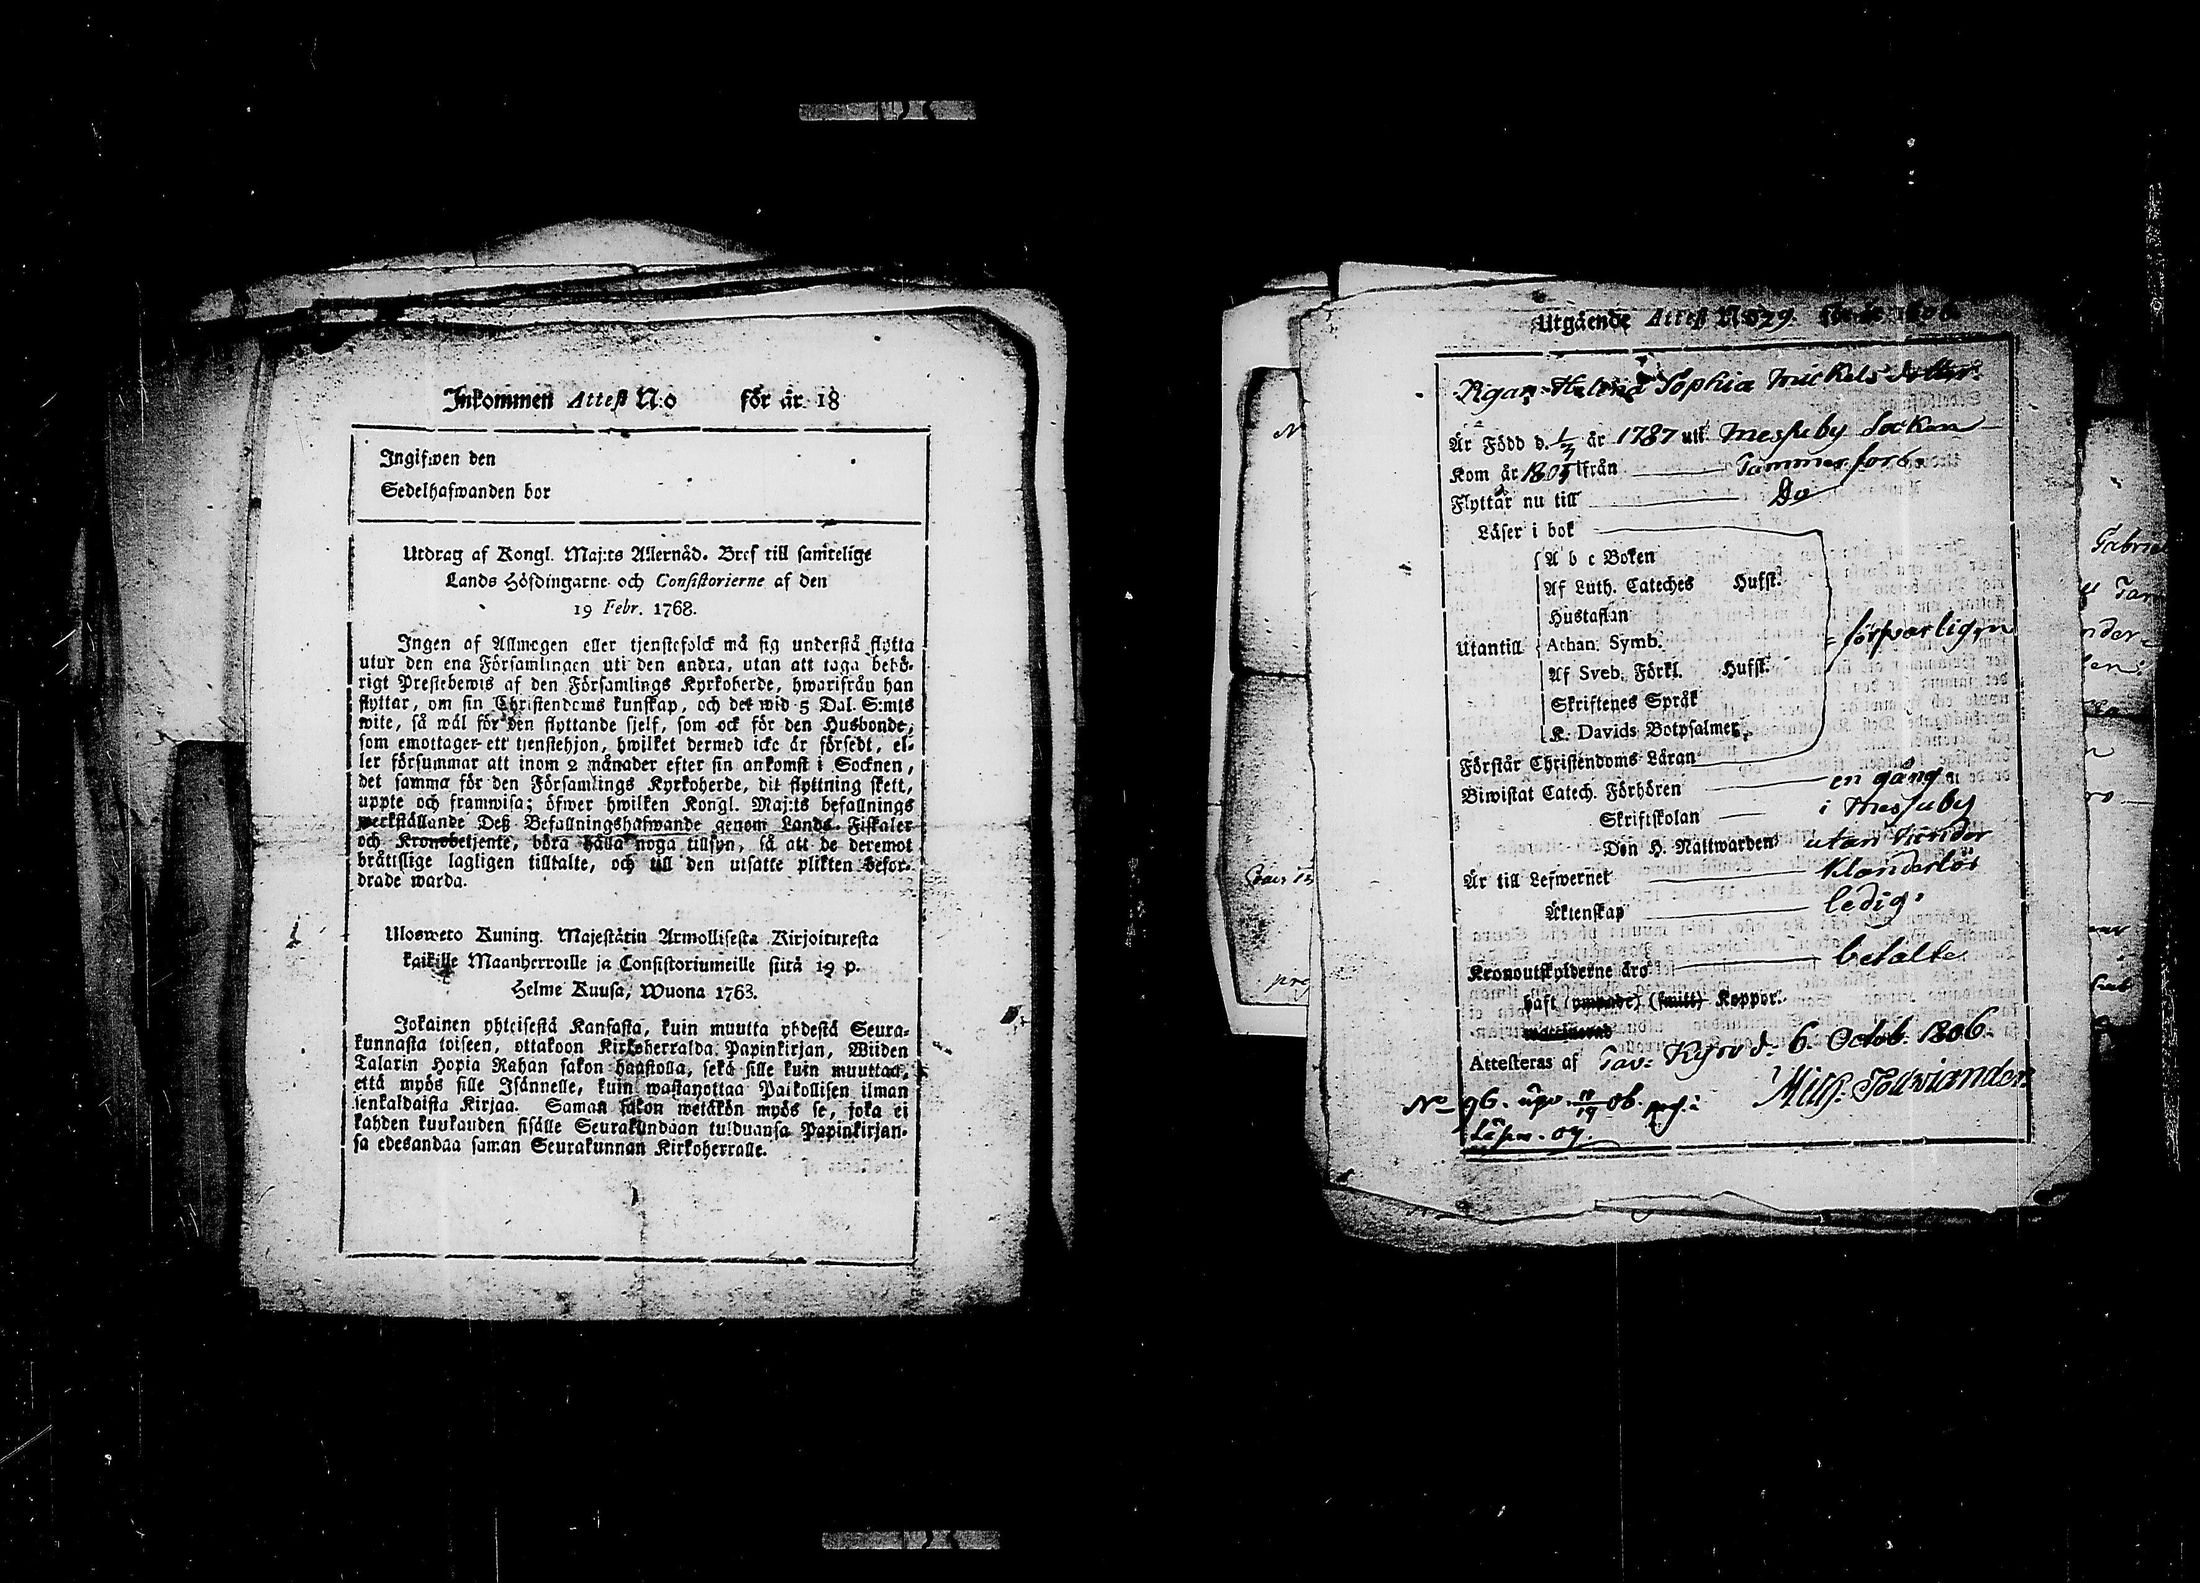 Inkommen Attest N:o för år 18
Ingifwen den
Sedelhafwanden bor
Utdrag af Kongl. Maj:ts Allernåd. Bref till samtelige
Lands Höfdingarne och Consistorierne af den
19 Febr. 1768.
Ingen af Allmogen eller tjenstefolck må sig understå flytta
utur den ena Församlingen uti den andra, utan att taga behö-
rigt Prestebewis af den Församlings Kyrkoherde, hwarifrån han
flyttar, om sin Christendoms kunskap, och det wid 5 Dal. S:mts
wite, så wäl för den flyttande sjelf, som ock för den Husbonde,
som emottager ett tjenstehjon, hwilket dermed icke är försedt, el-
ler försummar att inom 2 månader efter sin ankomst i Socknen,
det samma för den Församlings Kyrkoherde, dit flyttning skett,
uppte och framwisa; öfwer hwilken Kongl. Maj:ts befallnings
werkställande Deß Befallningshafwande genom Lands-Fiskaler
och Kronobetjente, böra hålla noga tillsyn, så att de deremot
brättslige lagligen tilltalte, och till den utsatte plikten befor-
drade warda.
Ulosweto Kuning. Majestätin Armollisesta Kirjoituxesta
kaikille Maanherroille ja Consistoriumeille siitä 19 p.
Helme Kuusa, Wuona 1768.
Jokainen yhteisestä Kansasta, kuin muutta yhdestä Seura-
kunnasta toiseen, ottakoon Kirkoherralda Papinkirjan, Wiiden
Talarin Hopia Rahan sakon haastolla, sekä sille kuin muuttaa,
että myös sille Isännelle, kuin wastanottaa Paikollisen ilman
senkaldaista Kirjaa. Saman sakon wetäkön myös se, joka ei
kahden kuukauden sisälle Seurakundaan tulduansa Papinkirjan-
sa edesandaa saman Seurakunnan Kirkoherralle.
Utgående Attest N:o 29
Pigan Helena Sophia Mickels dotter
Är Född d. 1/7 år 1787 uti Messuby Socken
Kom år ifrån Tammerfors
Flyttar nu till Do
Läser i bok
A b c Boken
Af Luth. Cateches Hufst.
Hustaflan
Utantill Athan. Symb. försvarligen
Af Sveb. Förkl. Hufst.
Skriftenes Språk
K. Davids Botpsalmer
Förstår Christendoms Läran
Biwistat Catech. Förhören en gång
Skriftskolan i Messuby
Den H. Nattwarden utan hinder
Är till Lefwernet klanderlös
Äktenskap ledig
Kronoutskylderne äro betalte
haft (ympade) (smitt) Koppor.
Attesteras af Tav. Kyro d. 6. Octob. 1806.
Mich. Tollviander
No 96.